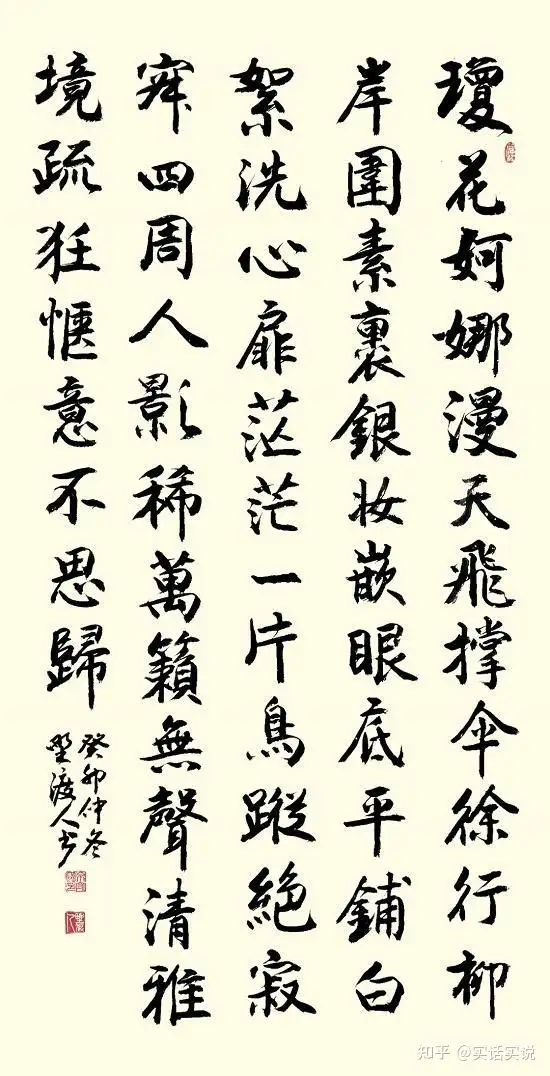 瓊花婀娜漫天飛撑伞徐行柳
岸圍素裹銀妆嵌眼底平鋪白
絮洗心扉茫茫一片鳥蹤絶寂
寂四周人影稀萬籟無聲清雅
境疏狂愜意不思歸
癸卯仲冬
野渡人书
知乎 @实话实说